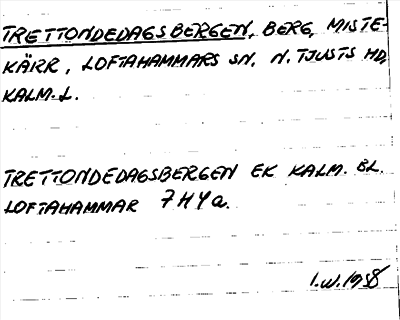 TRETTONDEDAGSBERGEN, BERG, MISTE-
KÄRR, LOFTAHAMMARS SN, N. TJUSTS HD,
KALM. L.
TRETTONDEDAGSBERGEN EK KALM. BL.
LOFTAHAMMAR 7H4a.
I.W. 1958